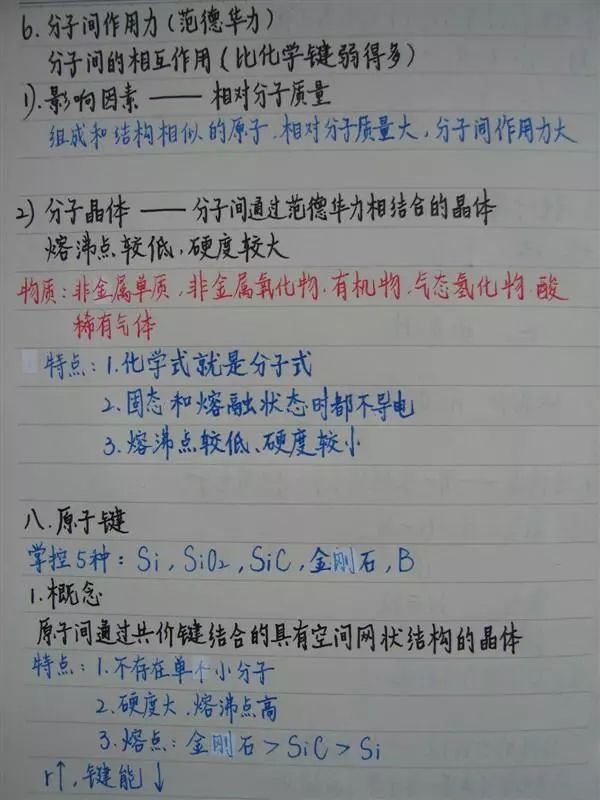 6. 分子间作用力（范德华力）
分子间的相互作用（比化学键弱得多）
1). 影响因素 —— 相对分子质量
组成和结构相似的原子，相对分子质量大，分子间作用力大
2) 分子晶体 —— 分子间通过范德华力相结合的晶体
熔沸点较低，硬度较大
物质：非金属单质，非金属氧化物，有机物，气态氢化物，酸
稀有气体
特点：1. 化学式就是分子式
2. 固态和熔融状态时都不导电
3. 熔沸点较低、硬度较小
八. 原子键
掌控5种：Si, SiO2, SiC, 金刚石, B
1. 概念
原子间通过共价键结合的具有空间网状结构的晶体
特点：1. 不存在单个小分子
2. 硬度大，熔沸点高
3. 熔点：金刚石 > SiC > Si
r↑, 键能↓